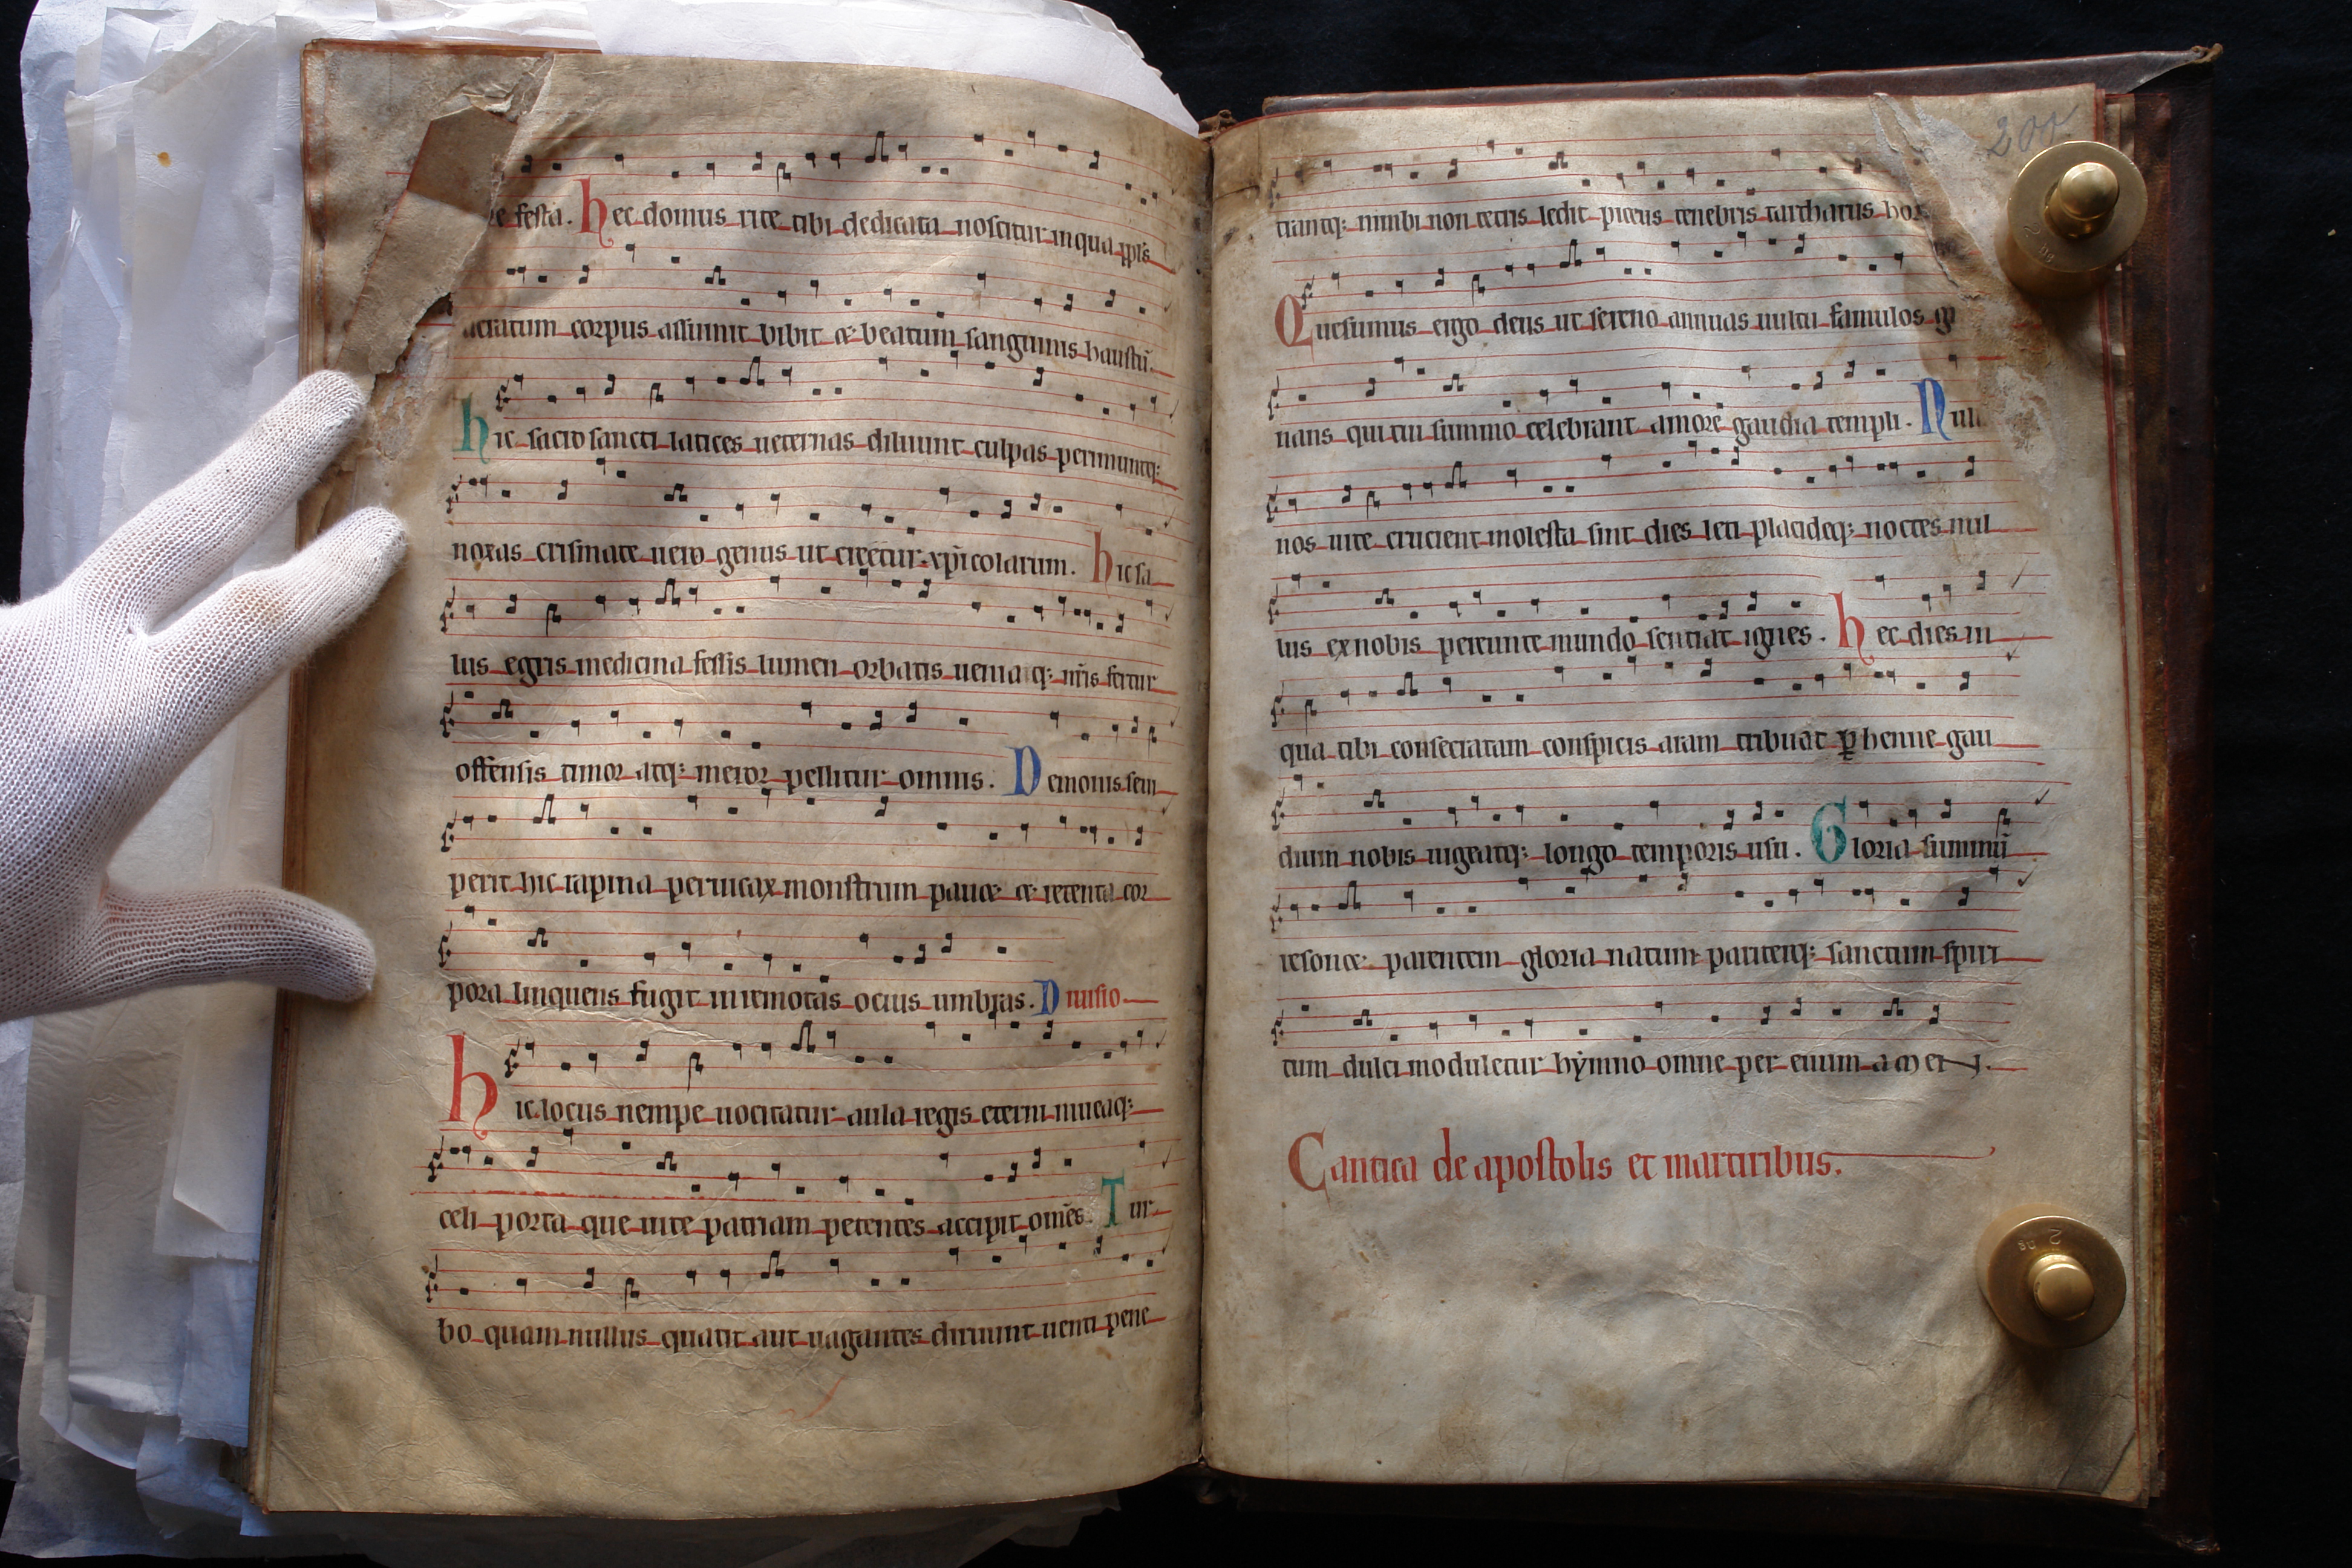 re festa. hec domus rite tibi dedicata noscitur in qua ppls
acratum corpus assumit bibit & beatum sanguinis haustū.
hic sacro sancti latices ueternas diluunt culpas perimuntq;
noxas crismate uero genus ut creetur xp̄icolarum. hic sa
lus egris medicina fessis lumen orbatis uenia q; nr̄is fertur
offensis timor atq; meror pellitur omnis. Demonis seua
perit hic rapina peruicax monstrum pauet & retenta cor
pora linquens fugit in remotas ocius umbras. Diuisio
hic locus nempe uocitatur aula regis eterni niueaq;
celi porta que uite patriam petentes accipit omēs. Tur
bo quam nullus quatit aut uagantes diruunt uenti pene
trantq; nimbi non tetris ledit piceus tenebris tartharus hor
Quesumus ergo deus ut sereno annuas uultu famulos g
nans qui tui summo celebrant amore gaudia templi. Null
nos uite crucient molesta sint dies leti placideq; noctes nul
lus ex nobis pereunte mundo sentiat ignes. hec dies in
qua tibi consecratam conspicis aram tribuat ꝑhenne gau
dium nobis uigeatq; longo temporis usu. Gloria summū
resonet parentem gloria natum pariterq; sanctum spiri
tum dulci moduletur hẏmno omne per euum amen.
Cantica de apostolis et martiribus.